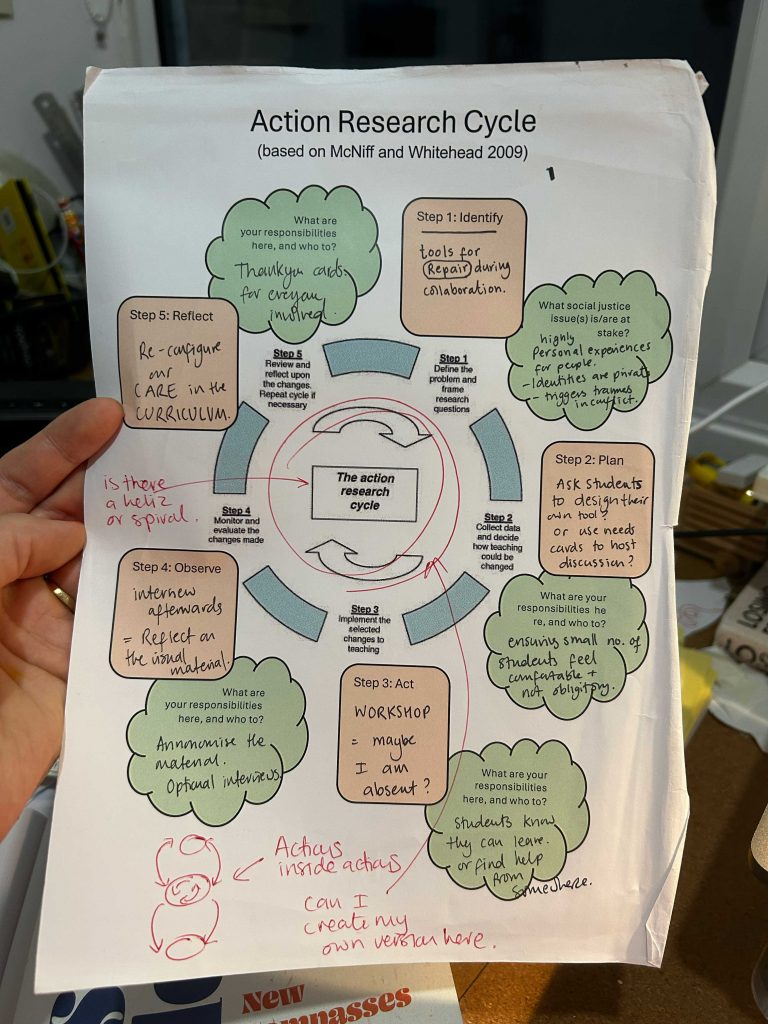 Action Research Cycle
(based on McNiff and Whitehead 2009)
What are
your responsibilities
here, and who to?
Thankyou cards
for everyone
involved.
Step 1: Identify
tools for
Repair during
collaboration.
What social justice
issue(s) is/are at
stake?
highly
Personal experiences
for people.
- Identities are private
- triggers traumas
in conflict.
Step 5: Reflect
Re-configure
our
CARE in the
CURRICULUM.
Step 5
Review and
reflect upon
the changes.
Repeat cycle if
necessary
Step 1
Define the
problem and
frame
research
questions
The action
research
cycle
is there
a helix
or spiral.
Step 2: Plan
ASK students
to design their
own tool?
or use needs
cards to host
discussion?
Step 4
Monitor and
evaluate the
changes made
Step 2
Collect data
and decide
how teaching
could be
changed
Step 4: Observe
interview
afterwards
= Reflect on
the visual material.
Step 3
Implement the
selected
changes to
teaching
What are your
responsibilities he
re, and who to?
ensuring small no. of
students feel
comfortable +
not obligitory.
What are
your responsibilities
here, and who to?
Annonomise the
material.
Optional interviews
Step 3: Act
WORKSHOP
= maybe
I am
absent?
What are your
responsibilities
here, and who to?
Students know
they can leave.
or find help
from
somewhere.
Actions
inside actions
can I
create my
own version here.
New
LOS